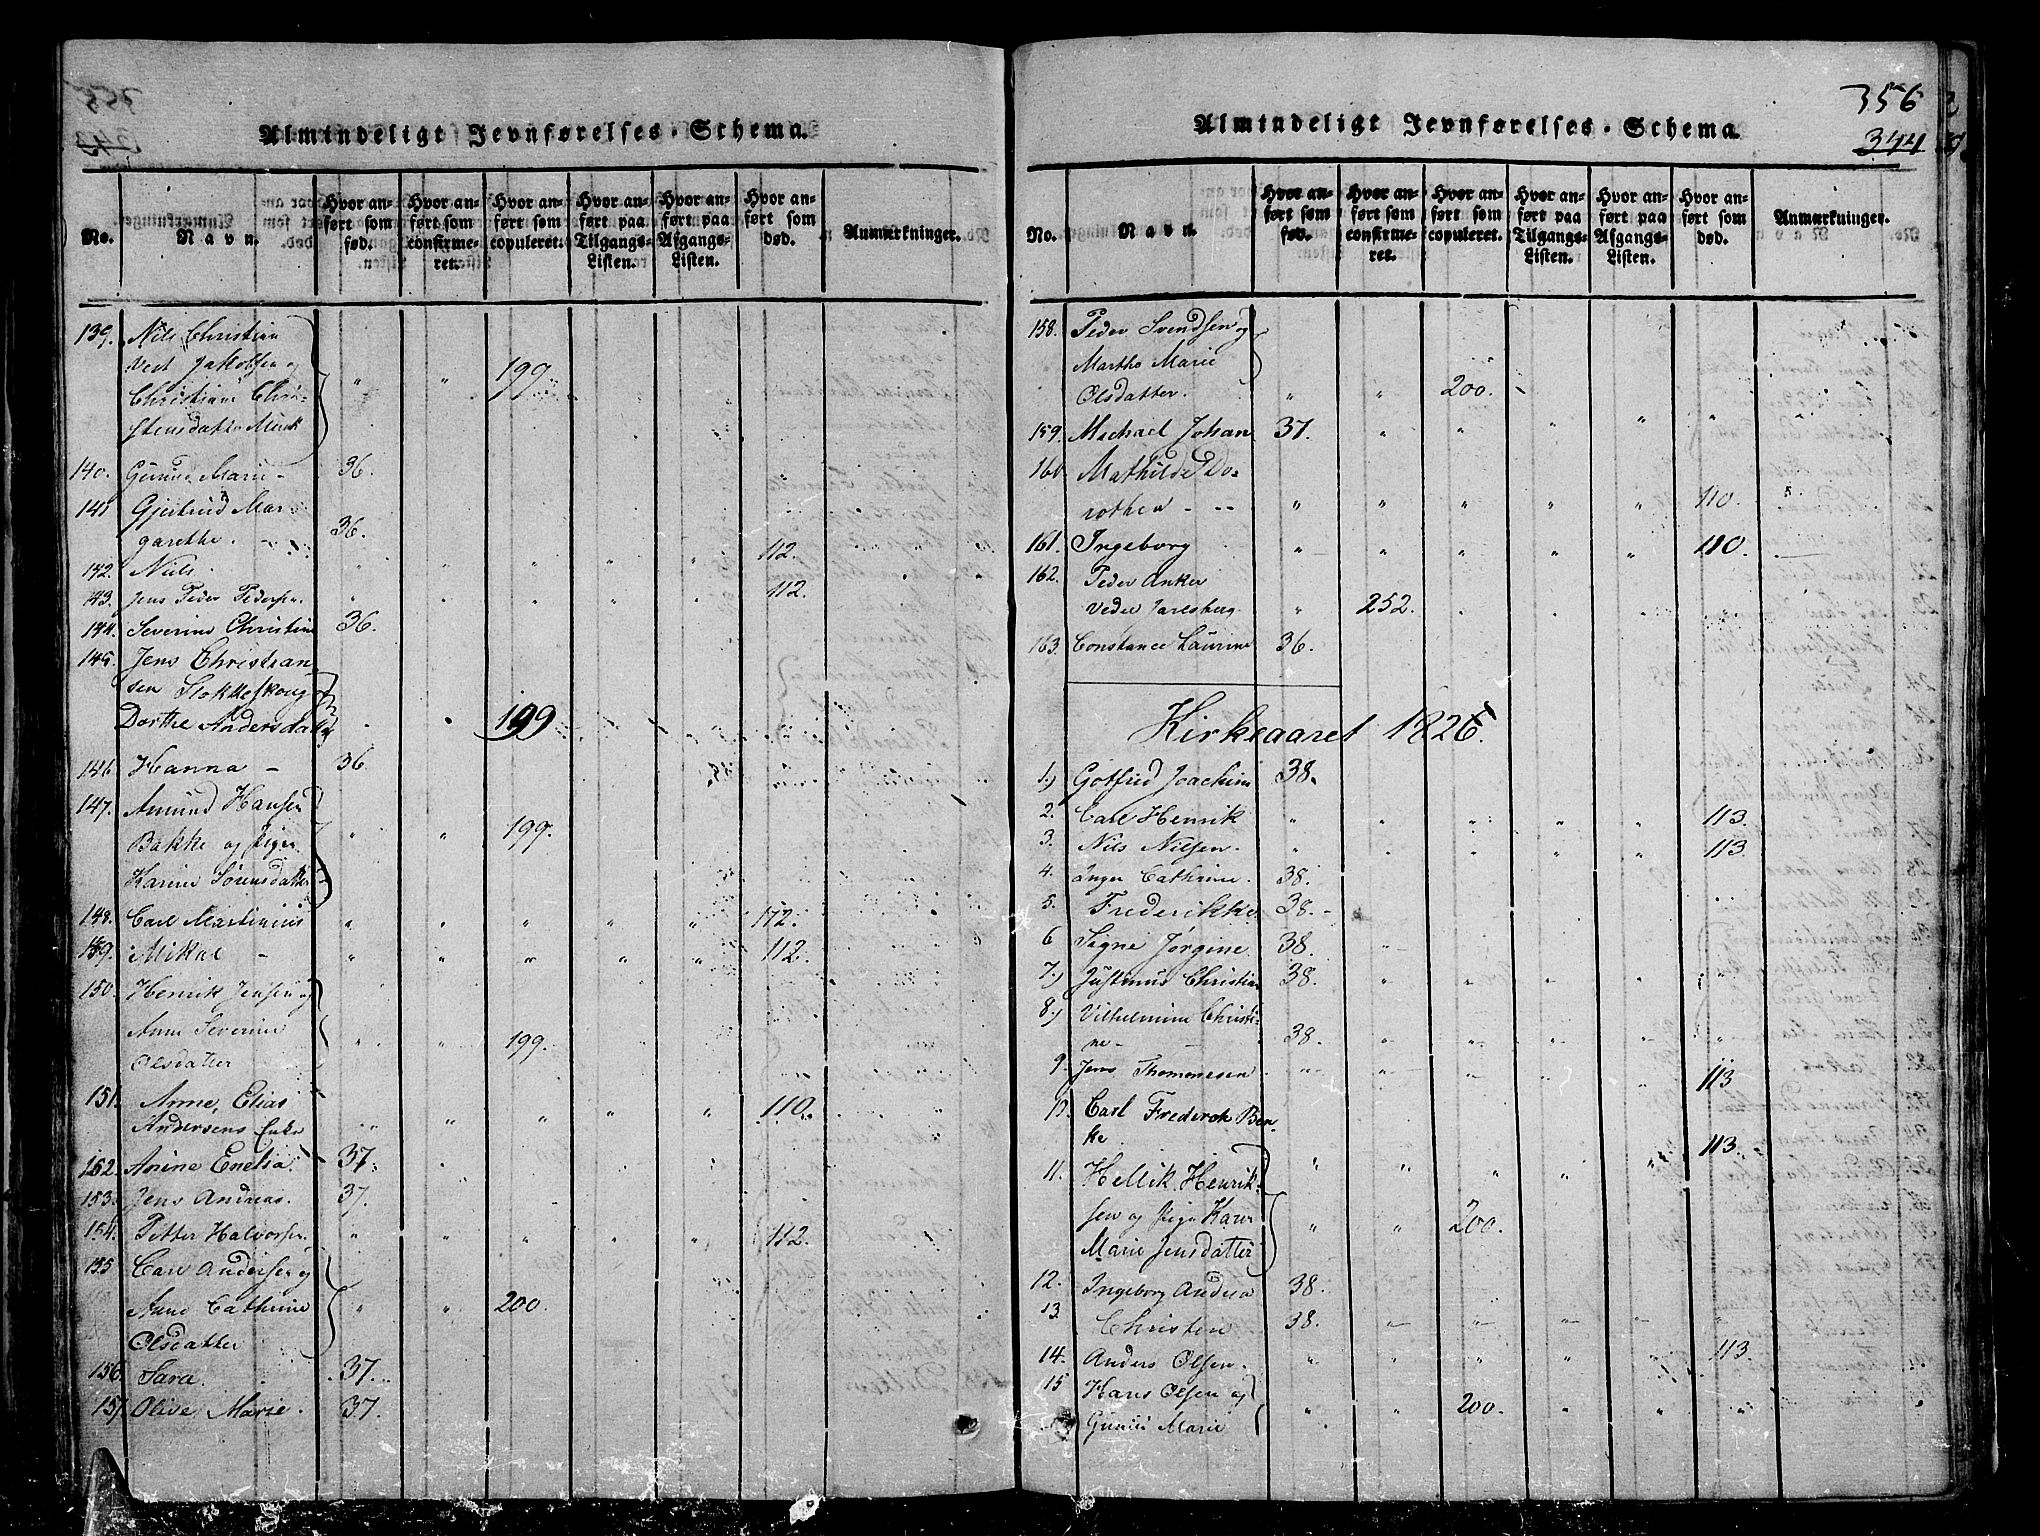 Almindeligt Jevnførelses-Schema.
No.
Navn.
Hvor anført som fød.
Hvor anført som confirmeret.
Hvor anført som copuleret.
Hvor anført paa Tilgangs-Listen.
Hvor anført paa Afgangs-Listen.
Hvor anført som død.
Anmærkninger.
139. Nils Christian
Vest Jakobsen og
Christiane Chri- " " 199
stensdatter Munk
140. Marie - 36.
141 Gjertrud Mar-
garethe. 36.
142. Niels. 112.
143. Jens Peder Pedersen. 112.
144. Severine Christine 36.
145. Jens Christian
sen Stokkeskoug
Dorthe Andersdatter 199
146. Hanna - 36
147. Amund Hansen
Bakke og Pigen 199.
Karine Sørensdatter
148. Carl Martinius 112.
149. Mikal - 112.
150. Henrik Jensen og
Anne Severine
Olsdatter 199.
151. Anne, Elias 110.
Andersens Enke
152. Anine Enelia 37.
153. Jens Andreas. 37.
154. Petter Halvorsen. 112.
155 Carl Andersen og
Anne Cathrine 200.
Olsdatter
156. Sara. 37.
157. Olive Marie. 37.
Almindeligt Jevnførelses-Schema.
356
344
No.
Navn.
Hvor anført som fød.
Hvor anført som confirmeret.
Hvor anført som copuleret.
Hvor anført paa Tilgangs-Listen.
Hvor anført paa Afgangs-Listen.
Hvor anført som død.
Anmærkninger.
158. Peder Svendsen og
Marthe Marie
Olsdatter. " " 200.
159. Michael Johan 37.
160. Mathilde Do-
rothea - -- 110.
161. Ingeborg 110.
162. Peder Anker
Vedel Jarlsberg 252.
163. Constance Laurine 36.
Kirkeaaret 1826.
1.) Gotfrid Joachim 38.
2. Carl Henrik 113.
3. Nils Nilsen. 113.
4. Inger Cathrine. 38.
5. Frederikke 38.
6 Signe Jørgine 38.
7.) Justinus Christian 38.
8.) Vilhelmine Christi-
ne- 38.
9. Jens Thommesen 113
10. Carl Frederek Ben-
ke 113.
11. Hellik Henrik-
sen og Pige Karen 200.
Marie Jensdatter
12. Ingeborg Andrea 38.
13. Christen 38.
14. Anders Olsen. 113.
15 Hans Olsen og
Marie 200.